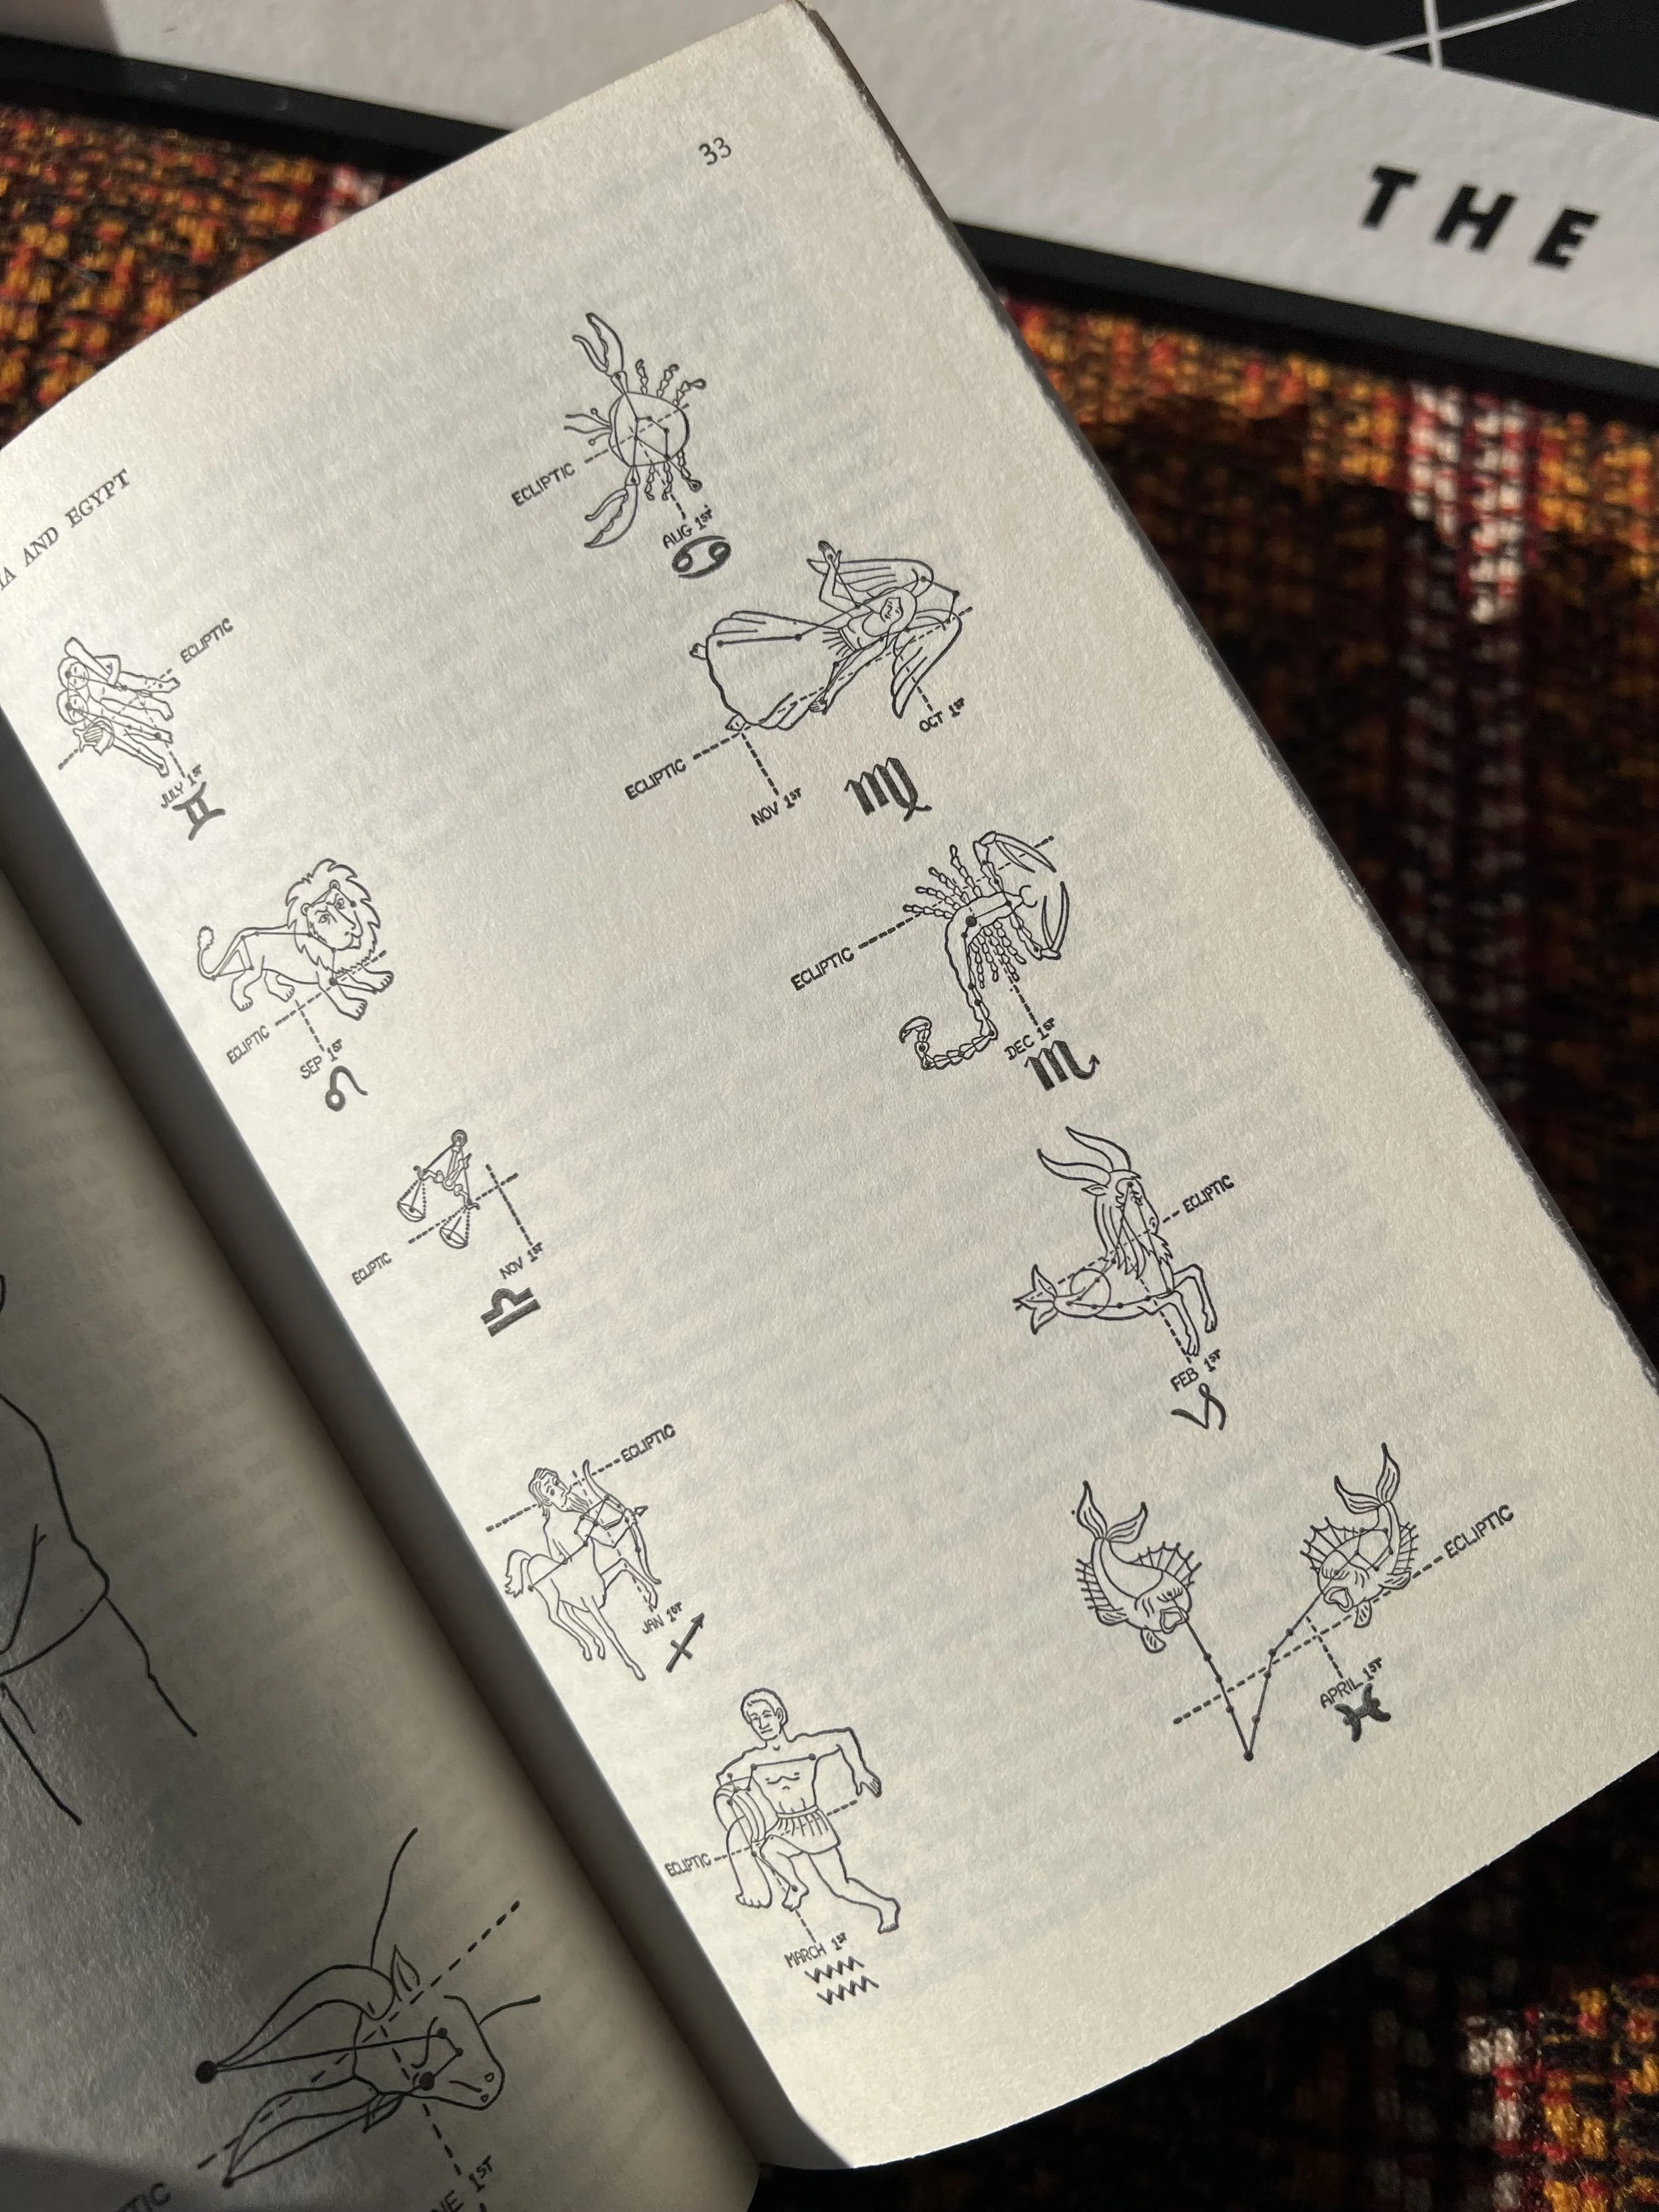 THE
33
AND EGYPT
ECLIPTIC
AUG 1ST
♋
ECLIPTIC
JULY 1ST
♊
OCT 1ST
ECLIPTIC
NOV 1ST
♍
ECLIPTIC
SEP 1ST
♌
ECLIPTIC
DEC 1ST
♏
ECLIPTIC
NOV 1ST
♎
ECLIPTIC
FEB 1ST
♑
ECLIPTIC
JAN 1ST
♐
ECLIPTIC
APRIL 1ST
♓
ECLIPTIC
MARCH 1ST
♒
1ST